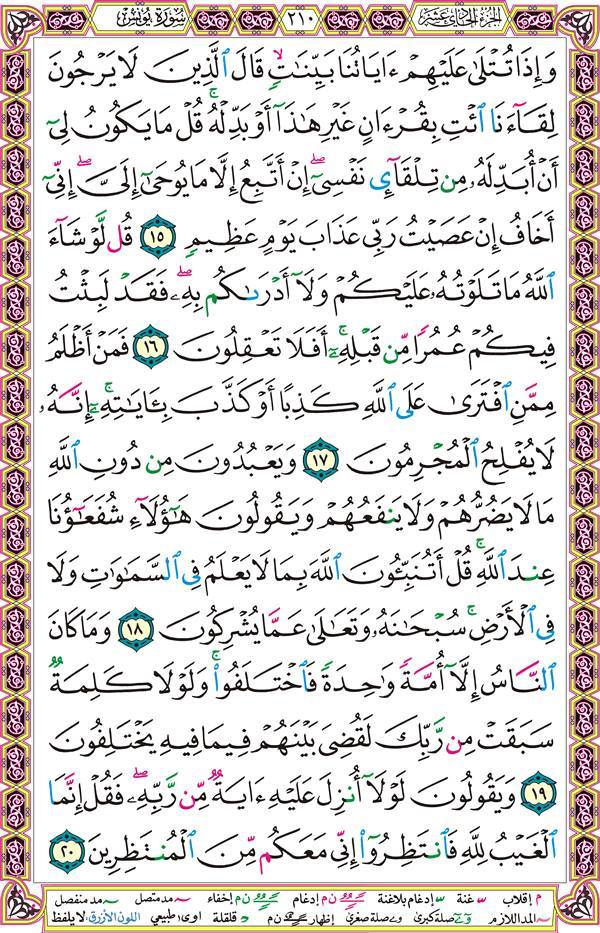 سورة يونس ٢١٠ الجزء الحادي عشر
وَإِذَا تُتْلَىٰ عَلَيْهِمْ ءَايَاتُنَا بَيِّنَٰتٍۙ قَالَ ٱلَّذِينَ لَا يَرْجُونَ
لِقَآءَنَا ٱئْتِ بِقُرْءَانٍ غَيْرِ هَٰذَآ أَوْ بَدِّلْهُۚ قُلْ مَا يَكُونُ لِىٓ
أَنْ أُبَدِّلَهُۥ مِن تِلْقَآئِ نَفْسِىٓۖ إِنْ أَتَّبِعُ إِلَّا مَا يُوحَىٰٓ إِلَىَّۖ إِنِّىٓ
أَخَافُ إِنْ عَصَيْتُ رَبِّى عَذَابَ يَوْمٍ عَظِيمٍ ١٥ قُل لَّوْ شَآءَ
ٱللَّهُ مَا تَلَوْتُهُۥ عَلَيْكُمْ وَلَآ أَدْرَىٰكُم بِهِۦۖ فَقَدْ لَبِثْتُ
فِيكُمْ عُمُرًا مِّن قَبْلِهِۦٓۚ أَفَلَا تَعْقِلُونَ ١٦ فَمَنْ أَظْلَمُ
مِمَّنِ ٱفْتَرَىٰ عَلَى ٱللَّهِ كَذِبًا أَوْ كَذَّبَ بِـَٔايَٰتِهِۦٓۚ إِنَّهُۥ
لَا يُفْلِحُ ٱلْمُجْرِمُونَ ١٧ وَيَعْبُدُونَ مِن دُونِ ٱللَّهِ
مَا لَا يَضُرُّهُمْ وَلَا يَنفَعُهُمْ وَيَقُولُونَ هَٰٓؤُلَآءِ شُفَعَٰٓؤُنَا
عِندَ ٱللَّهِۚ قُلْ أَتُنَبِّـُٔونَ ٱللَّهَ بِمَا لَا يَعْلَمُ فِى ٱلسَّمَٰوَٰتِ وَلَا
فِى ٱلْأَرْضِۚ سُبْحَٰنَهُۥ وَتَعَٰلَىٰ عَمَّا يُشْرِكُونَ ١٨ وَمَا كَانَ
ٱلنَّاسُ إِلَّآ أُمَّةً وَٰحِدَةً فَٱخْتَلَفُوا۟ۚ وَلَوْلَا كَلِمَةٌ
سَبَقَتْ مِن رَّبِّكَ لَقُضِىَ بَيْنَهُمْ فِيمَا فِيهِ يَخْتَلِفُونَ
١٩ وَيَقُولُونَ لَوْلَآ أُنزِلَ عَلَيْهِ ءَايَةٌ مِّن رَّبِّهِۦۖ فَقُلْ إِنَّمَا
ٱلْغَيْبُ لِلَّهِ فَٱنتَظِرُوٓا۟ إِنِّى مَعَكُم مِّنَ ٱلْمُنتَظِرِينَ ٢٠
م إقلاب غنة إدغام بلاغنة ن م إدغام ن م إخفاء مد متصل مد منفصل
المد اللازم صلة كبرى صلة صغرى إظهار ن م قلقلة اوى طبيعي اللون الأزرق: لا يلفظ